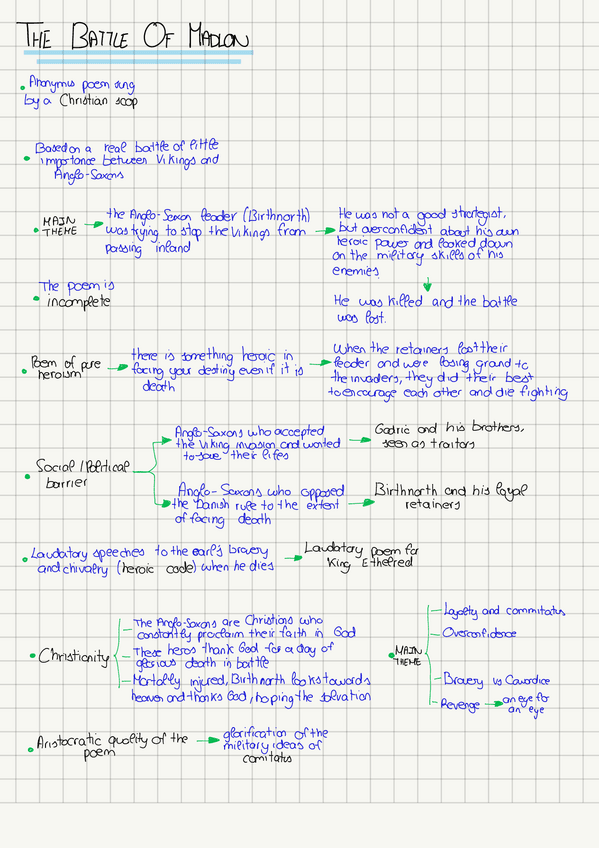 THE BATTLE OF MADLON
Anonymus poem sung
by a Christian scop
Based on a real battle of little
importance between Vikings and
Anglo-Saxons
MAIN
THEME
the Anglo-Saxon leader (Birthnorth)
was trying to stop the Vikings from
passing inland
He was not a good strategist,
but overconfident about his own
heroic power and looked down
on the military skills of his
enemies
He was killed and the battle
was lost.
The poem is
incomplete
Poem of pure
heroism
there is something heroic in
facing your destiny even if it is
death
When the retainers lost their
leader and were losing ground to
the invaders, they did their best
to encourage each other and die fighting
Social / Political
barrier
Anglo-Saxons who accepted
the Viking invasion and wanted
to save their lifes
Gadric and his brothers,
seen as traitors
Anglo-Saxons who opposed
the Danish rule to the extent
of facing death
Birthnorth and his loyal
retainers
Laudatory speeches to the earl's bravery
and chivalry (heroic code) when he dies
Laudatory poem for
King Ethelred
Christianity
The Anglo-Saxons are Christians who
constantly proclaim their faith in God
These heros thank God for a day of
glorious death in battle
Mortally injured, Birthnorth looks towards
heaven and thanks God, hoping the salvation
MAIN
THEME
Loyalty and commitatus
Overconfidence
Bravery vs Cowardice
Revenge
an eye for
an eye
Aristocratic quality of the
poem
glorification of the
military ideas of
comitatus